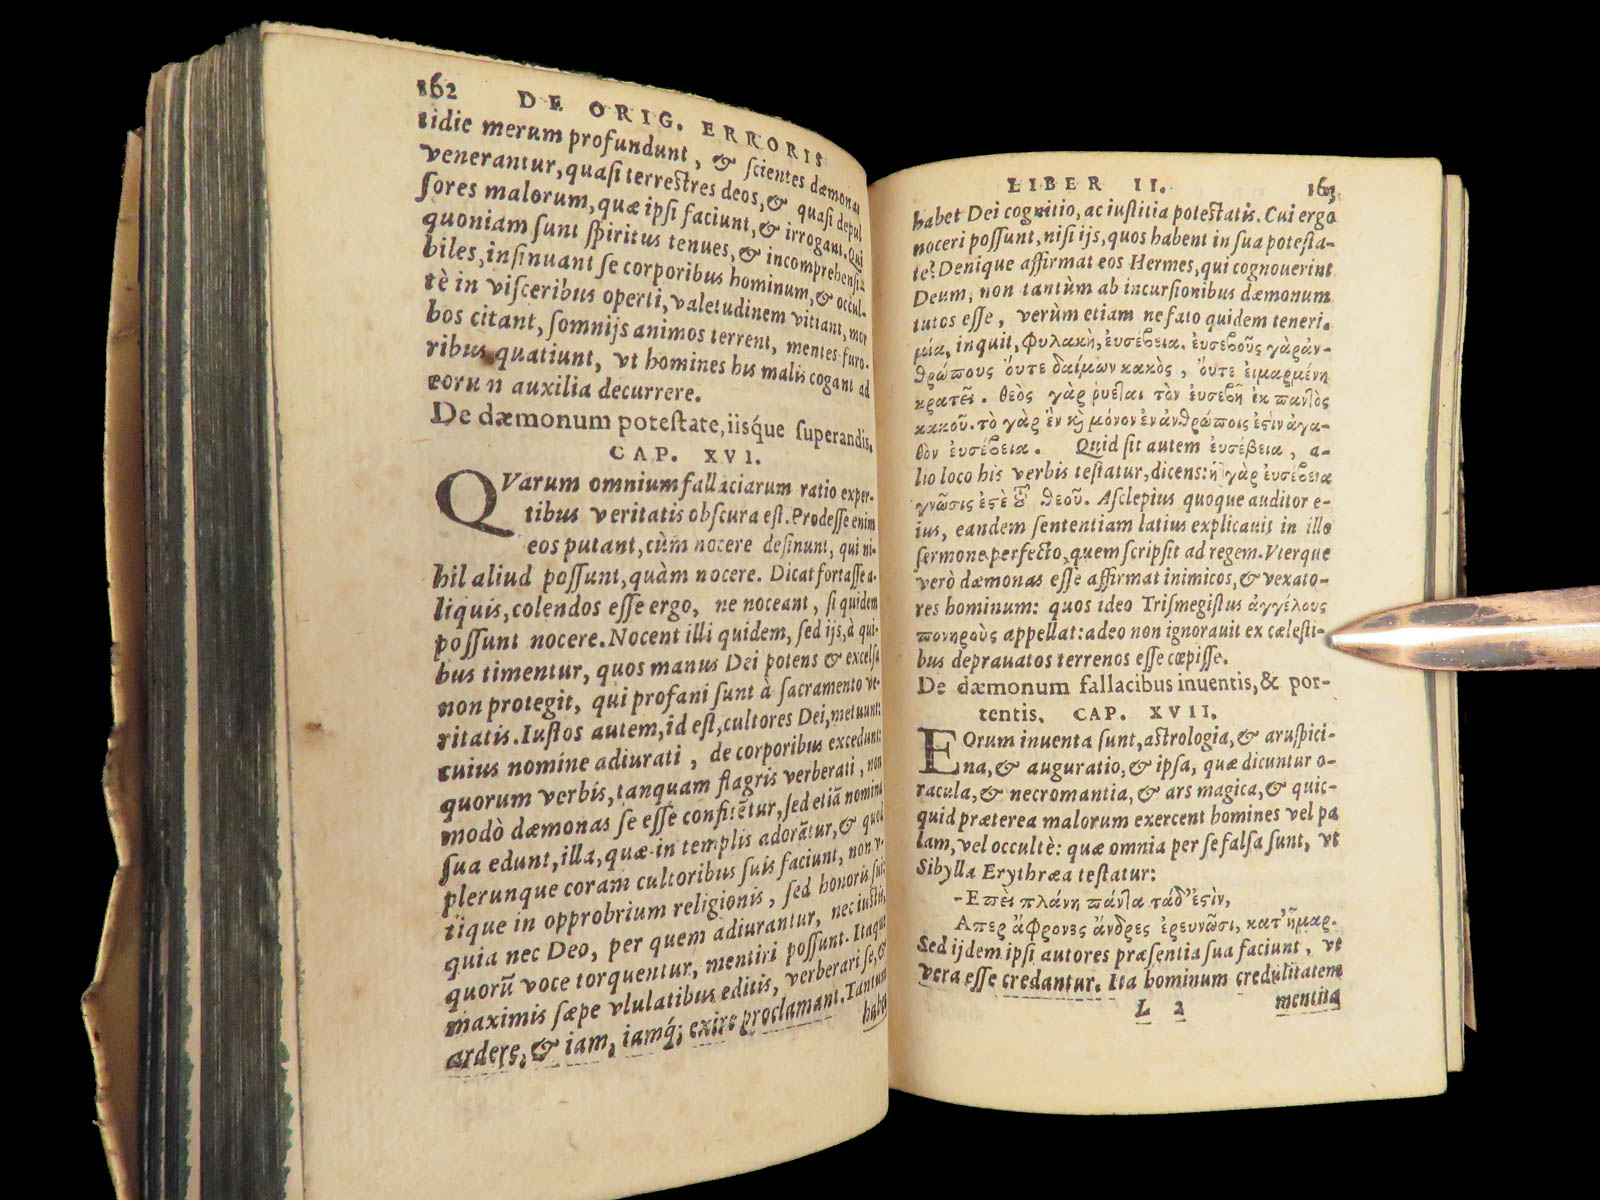 162 DE ORIG. ERRORIS
tidie merum profundunt, & scientes dæmonas
venerantur, quasi terrestres deos, & quasi depul
sores malorum, quæ ipsi faciunt, & irrogant. Qui
quoniam sunt spiritus tenues, & incomprehensi-
biles, insinuant se corporibus hominum, & occul-
tè in visceribus operti, valetudinem vitiant, mor
bos citant, somnijs animos terrent, mentes furo-
ribus quatiunt, vt homines his malis cogant ad
eoru n auxilia decurrere.
De dæmonum potestate, iisq́ue superandis.
CAP. XVI.
QVarum omnium fallaciarum ratio exper-
tibus veritatis obscura est. Prodesse enim
eos putant, cùm nocere desinunt, qui ni-
hil aliud possunt, quàm nocere. Dicat fortasse a-
liquis, colendos esse ergo, ne noceant, si quidem
possunt nocere. Nocent illi quidem, sed ijs, à qui-
bus timentur, quos manus Dei potens & excelsa
non protegit, qui profani sunt à sacramento ve-
ritatis. Iustos autem, id est, cultores Dei, metuunt:
cuius nomine adiurati, de corporibus excedunt:
quorum verbis, tanquam flagris verberati, non
modò dæmonas se esse confitẽtur, sed etiã nomina
sua edunt, illa, quæ in templis adorãtur, & quod
plerunque coram cultoribus suis faciunt, non v-
tique in opprobrium religionis, sed honoris sui:
quia nec Deo, per quem adiurantur, nec iustis,
quorũ voce torquentur, mentiri possunt. Itaque
maximis sæpe vlulatibus editis, verberari se, &
ardere, & iam, iamq́; exire proclamant. Tantum
habet
LIBER II. 163
habet Dei cognitio, ac iustitia potestatis. Cui ergo
noceri possunt, nisi ijs, quos habent in sua potesta-
te? Denique affirmat eos Hermes, qui cognouerint
Deum, non tantùm ab incursionibus dæmonum
tutos esse, verùm etiam ne fato quidem teneri.
μία, inquit, φυλακὴ, ἐυσέβεια. ἐυσεβοῦς γὰρ ἀν-
θρώπους ὄυτε δαίμων κακὸς, ὄυτε ἐιμαρμένη
κρατεῖ. θεὸς γὰρ ῥύεται τὸν ἐυσεβῆ ἐκ παντὸς
κακοῦ. τὸ γὰρ ἓν κὶ μόνον ἐν ἀνθρώποις ἐςὶν ἀγα-
θὸν ἐυσέβεια. Quid sit autem ἐυσέβεια, a-
lio loco his verbis testatur, dicens: ἡ γὰρ ἐυσέβεια
γνῶσις ἐςὶ τοῦ θεοῦ. Asclepius quoque auditor e-
ius, eandem sententiam latius explicauit in illo
sermone perfecto, quem scripsit ad regem. Vterque
verò dæmonas esse affirmat inimicos, & vexato-
res hominum: quos ideo Trismegistus ἀγγέλους
πονηροὺς appellat: adeo non ignorauit ex cælesti-
bus deprauatos terrenos esse cœpisse.
De dæmonum fallacibus inuentis, & por-
tentis. CAP. XVII.
EOrum inuenta sunt, astrologia, & aruspici-
na, & auguratio, & ipsa, quæ dicuntur o-
racula, & necromantia, & ars magica, & quic-
quid præterea malorum exercent homines vel pa
lam, vel occultè: quæ omnia per se falsa sunt, vt
Sibylla Erythræa testatur:
-Επὲι πλάνη πάντα τάδ᾽ ἐςὶν,
Απερ ἄφρονες ἄνδρες ἐρευνῶσι, κατ᾽ ἦμαρ.
Sed ijdem ipsi autores præsentia sua faciunt, vt
vera esse credantur. Ita hominum credulitatem
L 2 mentita